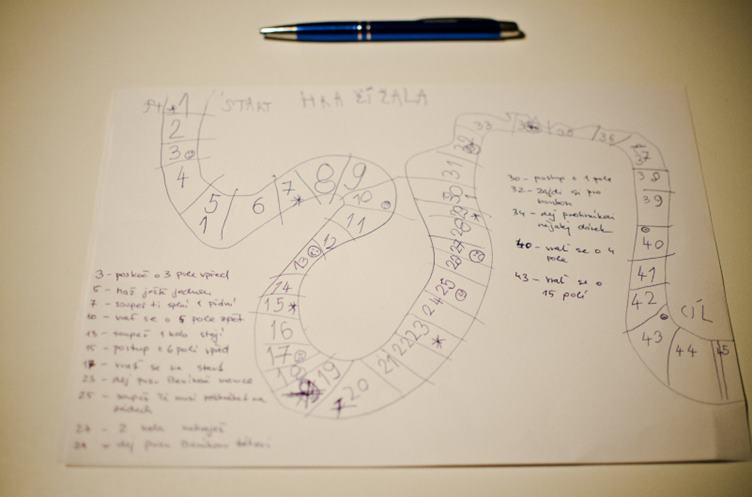 START HRA ŽÍŽALA
1
2
3
4
5
6
7
8
9
10
11
12
13
14
15
16
17
18
19
20
21
22
23
24
25
26
27
28
29
30
31
32
33
36
37
38
39
40
41
42
43
44
45
CÍL
3 - poskoč o 3 pole vpřed
5 - hoď ještě jednou
7 - soupeř ti splní 1 přání
10 - vrať se o 5 pole zpět
13 - soupeř 1 kolo stojí
15 - postup o 6 polí vpřed
17 - vrať se na start
23 - dej pusu
25 - soupeř tě musí na zádech
27 - 2 kola nehraješ
29 - dej pusu
30 - postup o 1 pole
32 - zajdi si pro bonbon
34 - dej protihráčovi nějaký dárek
40 - vrať se o 4 pole
43 - vrať se o 15 polí